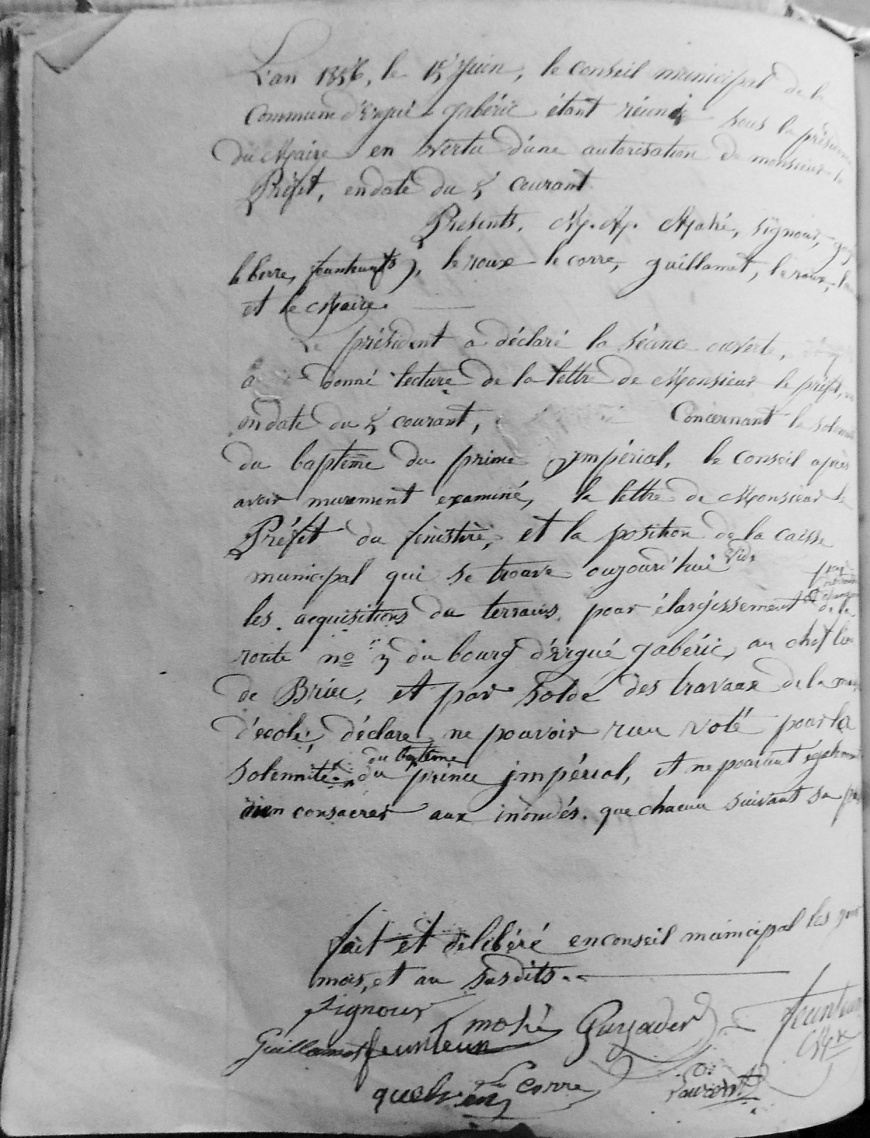 L'an 1856, le 15 juin, le conseil municipal de la
Commune d'Ergué-gabéric étant réuni sous la présidence
du Maire en vertu d'une autorisation de monsieur le
Préfet, en date du 5 courant
Présents, M.M. Mahé, Signour,
le berre, feunteun, le roux le corre, guillamet, le roux,
et le Maire.
Le président a déclaré la séance ouverte,
a donné lecture de la lettre de Monsieur le préfet,
en date du 5 courant, Concernant la
du baptême du prince impérial, le conseil après
avoir murement examiné, la lettre de Monsieur le
Préfet du finistère, et la position de la caisse
municipal qui se trouve aujourd'hui vide
les acquisitions du terrains, pour élargissement et de la
route no 3 du bourg d'Ergué gabéric, au chef lieu
de Briec, et par solde des travaux de la
d'école, déclare ne pouvoir rien voté pour la
solennité du baptême du prince impérial, et ne pouvant également
rien consacrer aux inondés. que chacun suivant sa
fait et délibéré en conseil municipal les jour
mois, et an susdits.
Signour mahé Guyader feunteun
Guillamet feunteun Mre
quelven Corre Laurent